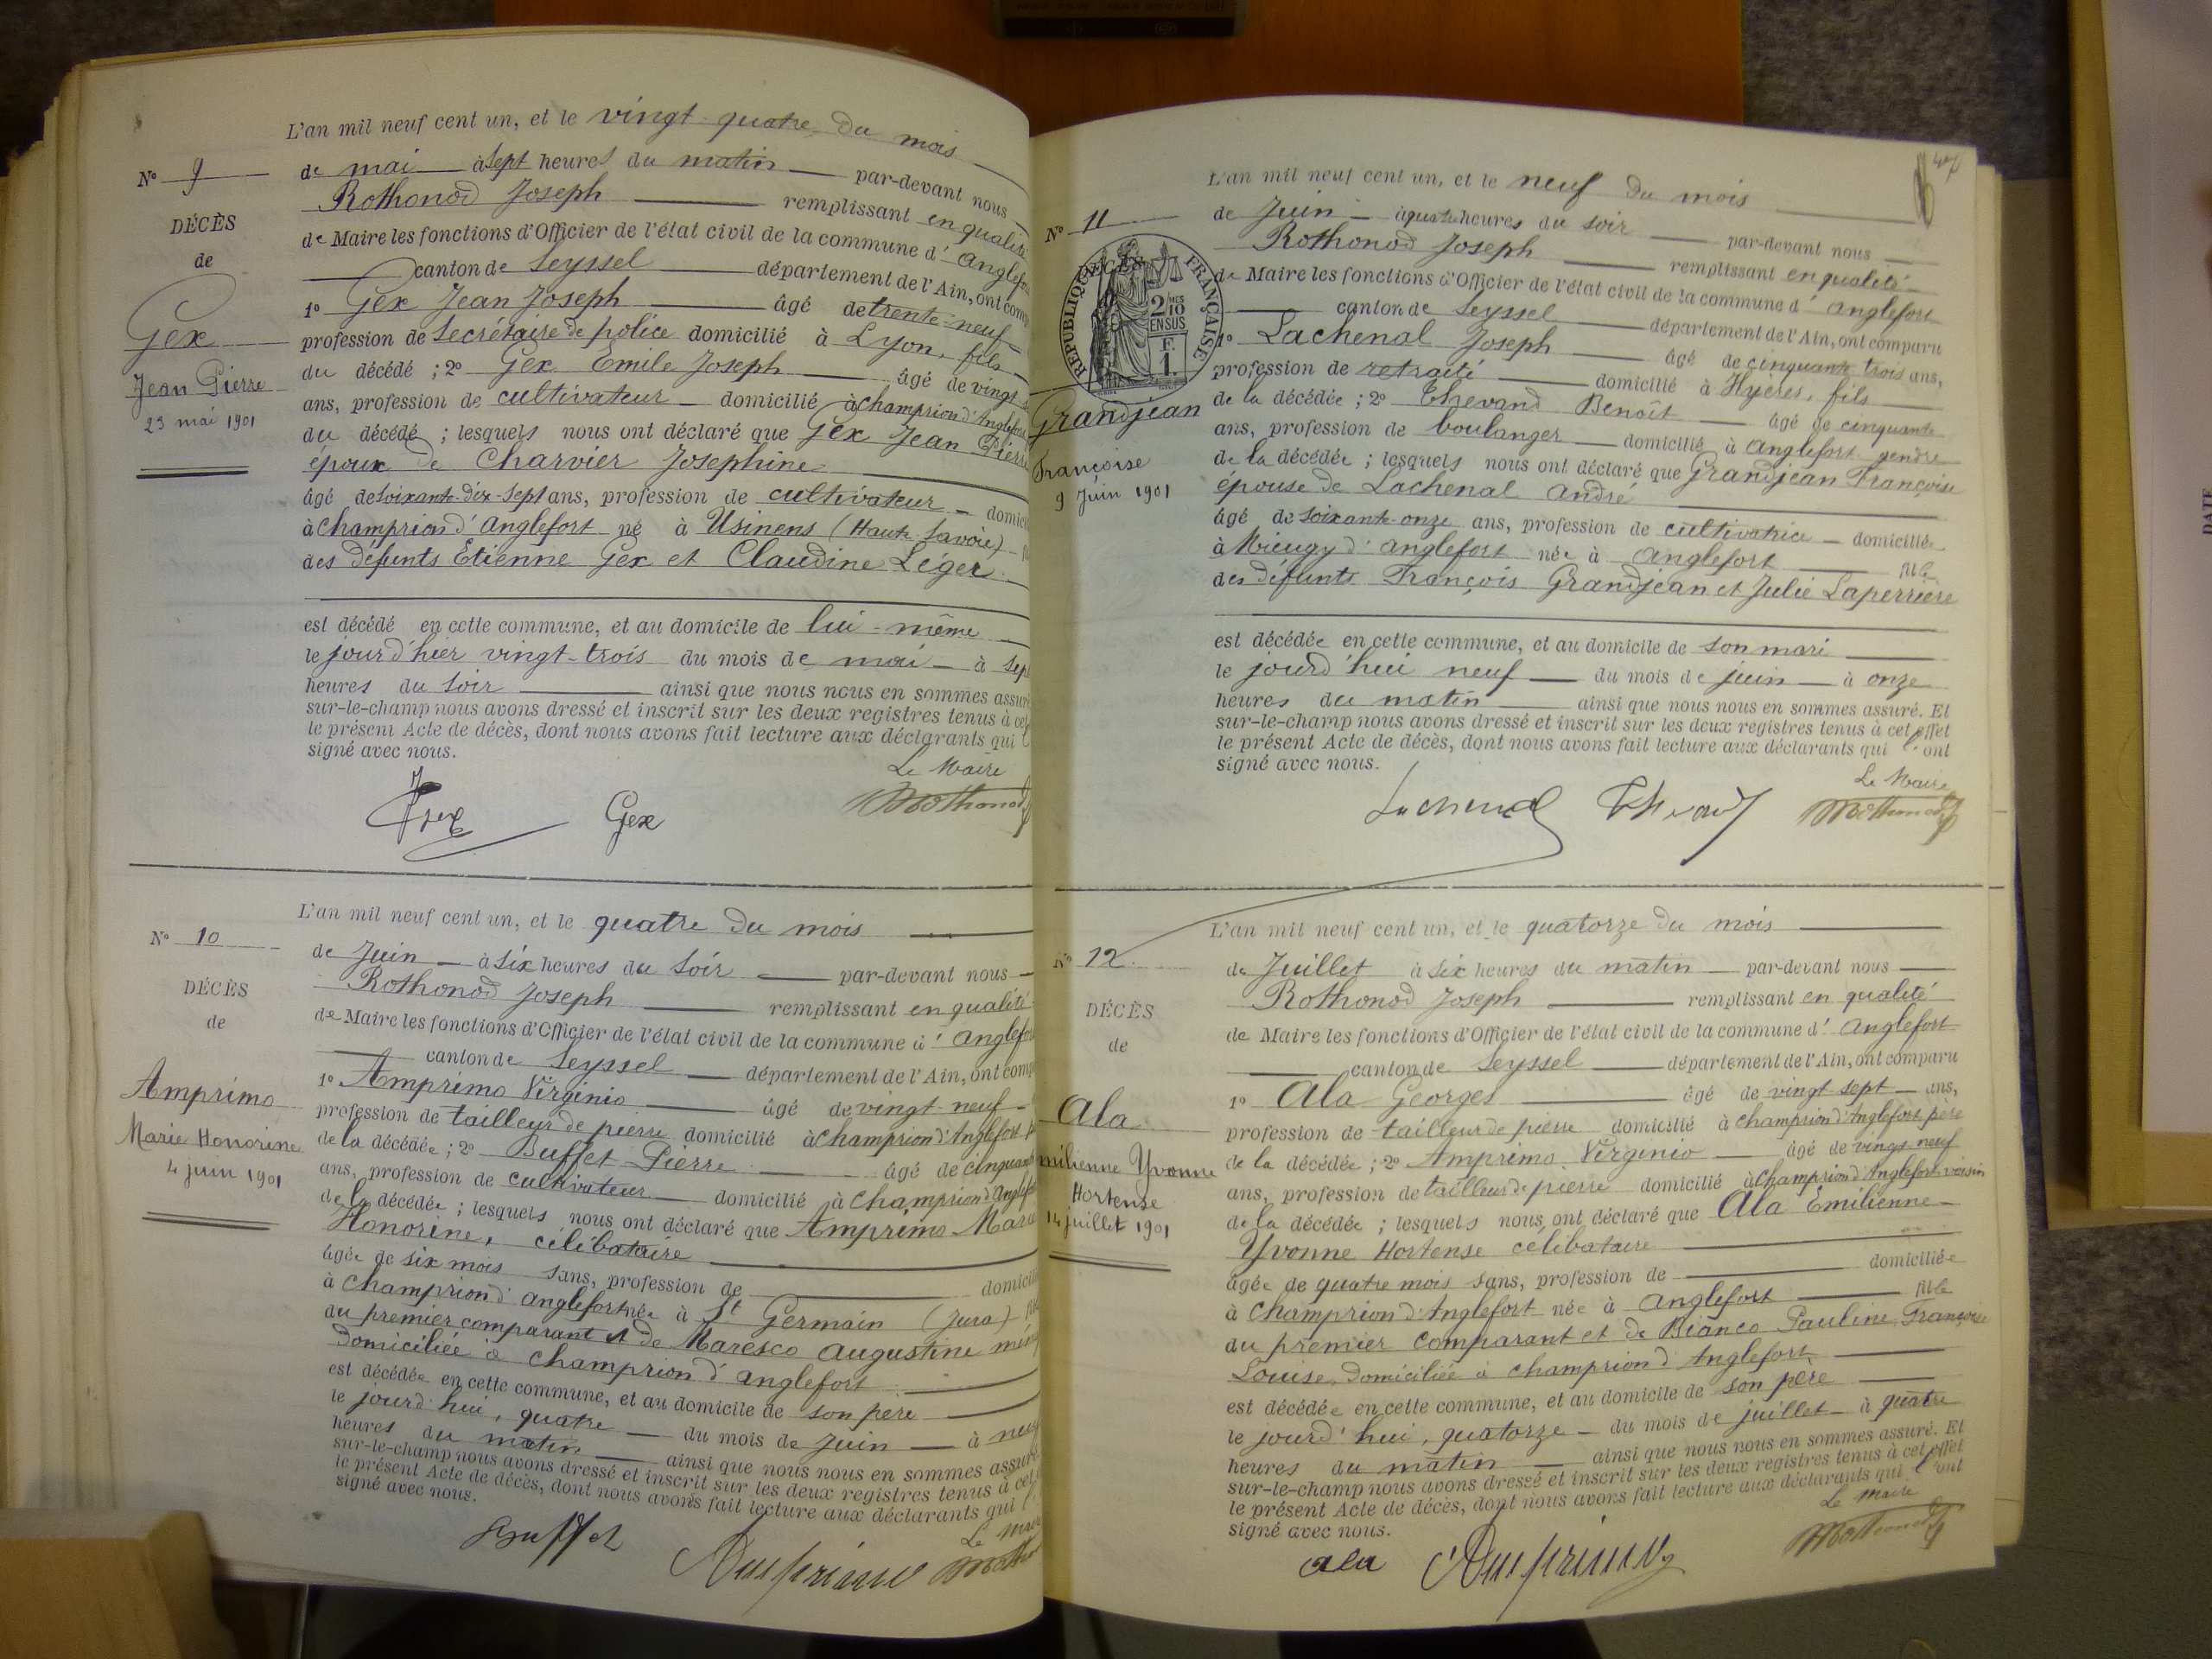 L'an mil neuf cent un, et le vingt quatre du mois
N° 9
de mai à sept heures du matin par-devant nous
Rothonod Joseph remplissant en qualité
DÉCÈS
de Maire les fonctions d'Officier de l'état civil de la commune d'
de
canton de Seyssel département de l'Ain, ont
1° Gex Jean Joseph âgé de trente-neuf
Gex
profession de Secrétaire de police domicilié à Lyon, fils
Jean Pierre
du décédé ; 2° Gex Emile Joseph âgé de vingt
23 mai 1901
ans, profession de cultivateur domicilié à Champriond d'
du décédé ; lesquels nous ont déclaré que Gex Jean Pierre
époux de Charvier Josephine
âgé de soixante-dix-sept ans, profession de cultivateur
à Champriond d'Anglefort né à Usinens (Haute Savoie)
des défunts Étienne Gex et Claudine Léger
est décédé en cette commune, et au domicile de lui-même
le jour d'hier vingt-trois du mois de mai à
heures du soir ainsi que nous nous en sommes
sur-le-champ nous avons dressé et inscrit sur les deux registres tenus à
le présent Acte de décès, dont nous avons fait lecture aux déclarants qui
signé avec nous.
Le Maire
Gex
L'an mil neuf cent un, et le quatre du mois
N° 10
de Juin à six heures du soir par-devant nous
Rothonod Joseph remplissant en qualité
DÉCÈS
de Maire les fonctions d'Officier de l'état civil de la commune d'
de
canton de Seyssel département de l'Ain, ont
1° Amprimo Virginio âgé de vingt-neuf
Amprimo
profession de tailleur de pierre domicilié à Champriond d'Anglefort
Marie Honorine
de la décédée ; 2° Buffet Pierre âgé de
4 juin 1901
ans, profession de cultivateur domicilié à Champriond d'
de la décédée ; lesquels nous ont déclaré que Amprimo
Honorine, célibataire
âgée de six mois sans, profession de
à Champriond d'Anglefort née à St Germain (Jura)
du premier comparant et de Maresco Augustine
domiciliée à Champriond d'Anglefort
est décédée en cette commune, et au domicile de son père
le jourd'hui, quatre du mois de Juin à
heures du matin ainsi que nous nous en sommes
sur-le-champ nous avons dressé et inscrit sur les deux registres tenus à
le présent Acte de décès, dont nous avons fait lecture aux déclarants qui
signé avec nous.
Buffet Amprimo
L'an mil neuf cent un, et le neuf du mois
N° 11
de Juin à quatre heures du soir par-devant nous
Rothonod Joseph remplissant en qualité
RÉPUBLIQUE FRANÇAISE
2/10 EN SUS
F. 1.
de Maire les fonctions d'Officier de l'état civil de la commune d' Anglefort
canton de Seyssel département de l'Ain, ont comparu
1° Lachenal Joseph âgé de cinquante trois ans,
profession de retraité domicilié à Hyères, fils
Grandjean
de la décédée ; 2° Thevand Benoît âgé de cinquante
Françoise
ans, profession de boulanger domicilié à Anglefort gendre
9 Juin 1901
de la décédée ; lesquels nous ont déclaré que Grandjean Françoise
épouse de Lachenal André
âgé de soixante-onze ans, profession de cultivatrice domiciliée
à Mieugy d'Anglefort née à Anglefort fille
des défunts François Grandjean et Julie Laperrière
est décédée en cette commune, et au domicile de son mari
le jourd'hui neuf du mois de juin à onze
heures du matin ainsi que nous nous en sommes assuré. Et
sur-le-champ nous avons dressé et inscrit sur les deux registres tenus à cet effet
le présent Acte de décès, dont nous avons fait lecture aux déclarants qui l'ont
signé avec nous.
Le Maire
Lachenal
L'an mil neuf cent un, et le quatorze du mois
N° 12
de Juillet à six heures du matin par-devant nous
Rothonod Joseph remplissant en qualité
DÉCÈS
de Maire les fonctions d'Officier de l'état civil de la commune d' Anglefort
de
canton de Seyssel département de l'Ain, ont comparu
1° Ala Georges âgé de vingt sept ans,
Ala
profession de tailleur de pierre domicilié à Champriond d'Anglefort père
milienne Yvonne
de la décédée ; 2° Amprimo Virginio âgé de vingt neuf
Hortense
ans, profession de tailleur de pierre domicilié à Champriond d'Anglefort voisin
14 juillet 1901
de la décédée ; lesquels nous ont déclaré que Ala Émilienne
Yvonne Hortense célibataire
âgée de quatre mois sans, profession de domiciliée
à Champriond d'Anglefort née à Anglefort fille
du premier comparant et de Bianco Pauline Françoise
Louise, domiciliée à Champriond d'Anglefort
est décédée en cette commune, et au domicile de son père
le jourd'hui, quatorze du mois de juillet à quatre
heures du matin ainsi que nous nous en sommes assuré. Et
sur-le-champ nous avons dressé et inscrit sur les deux registres tenus à cet effet
le présent Acte de décès, dont nous avons fait lecture aux déclarants qui l'ont
signé avec nous.
Le Maire
Ala Amprimo
DATE